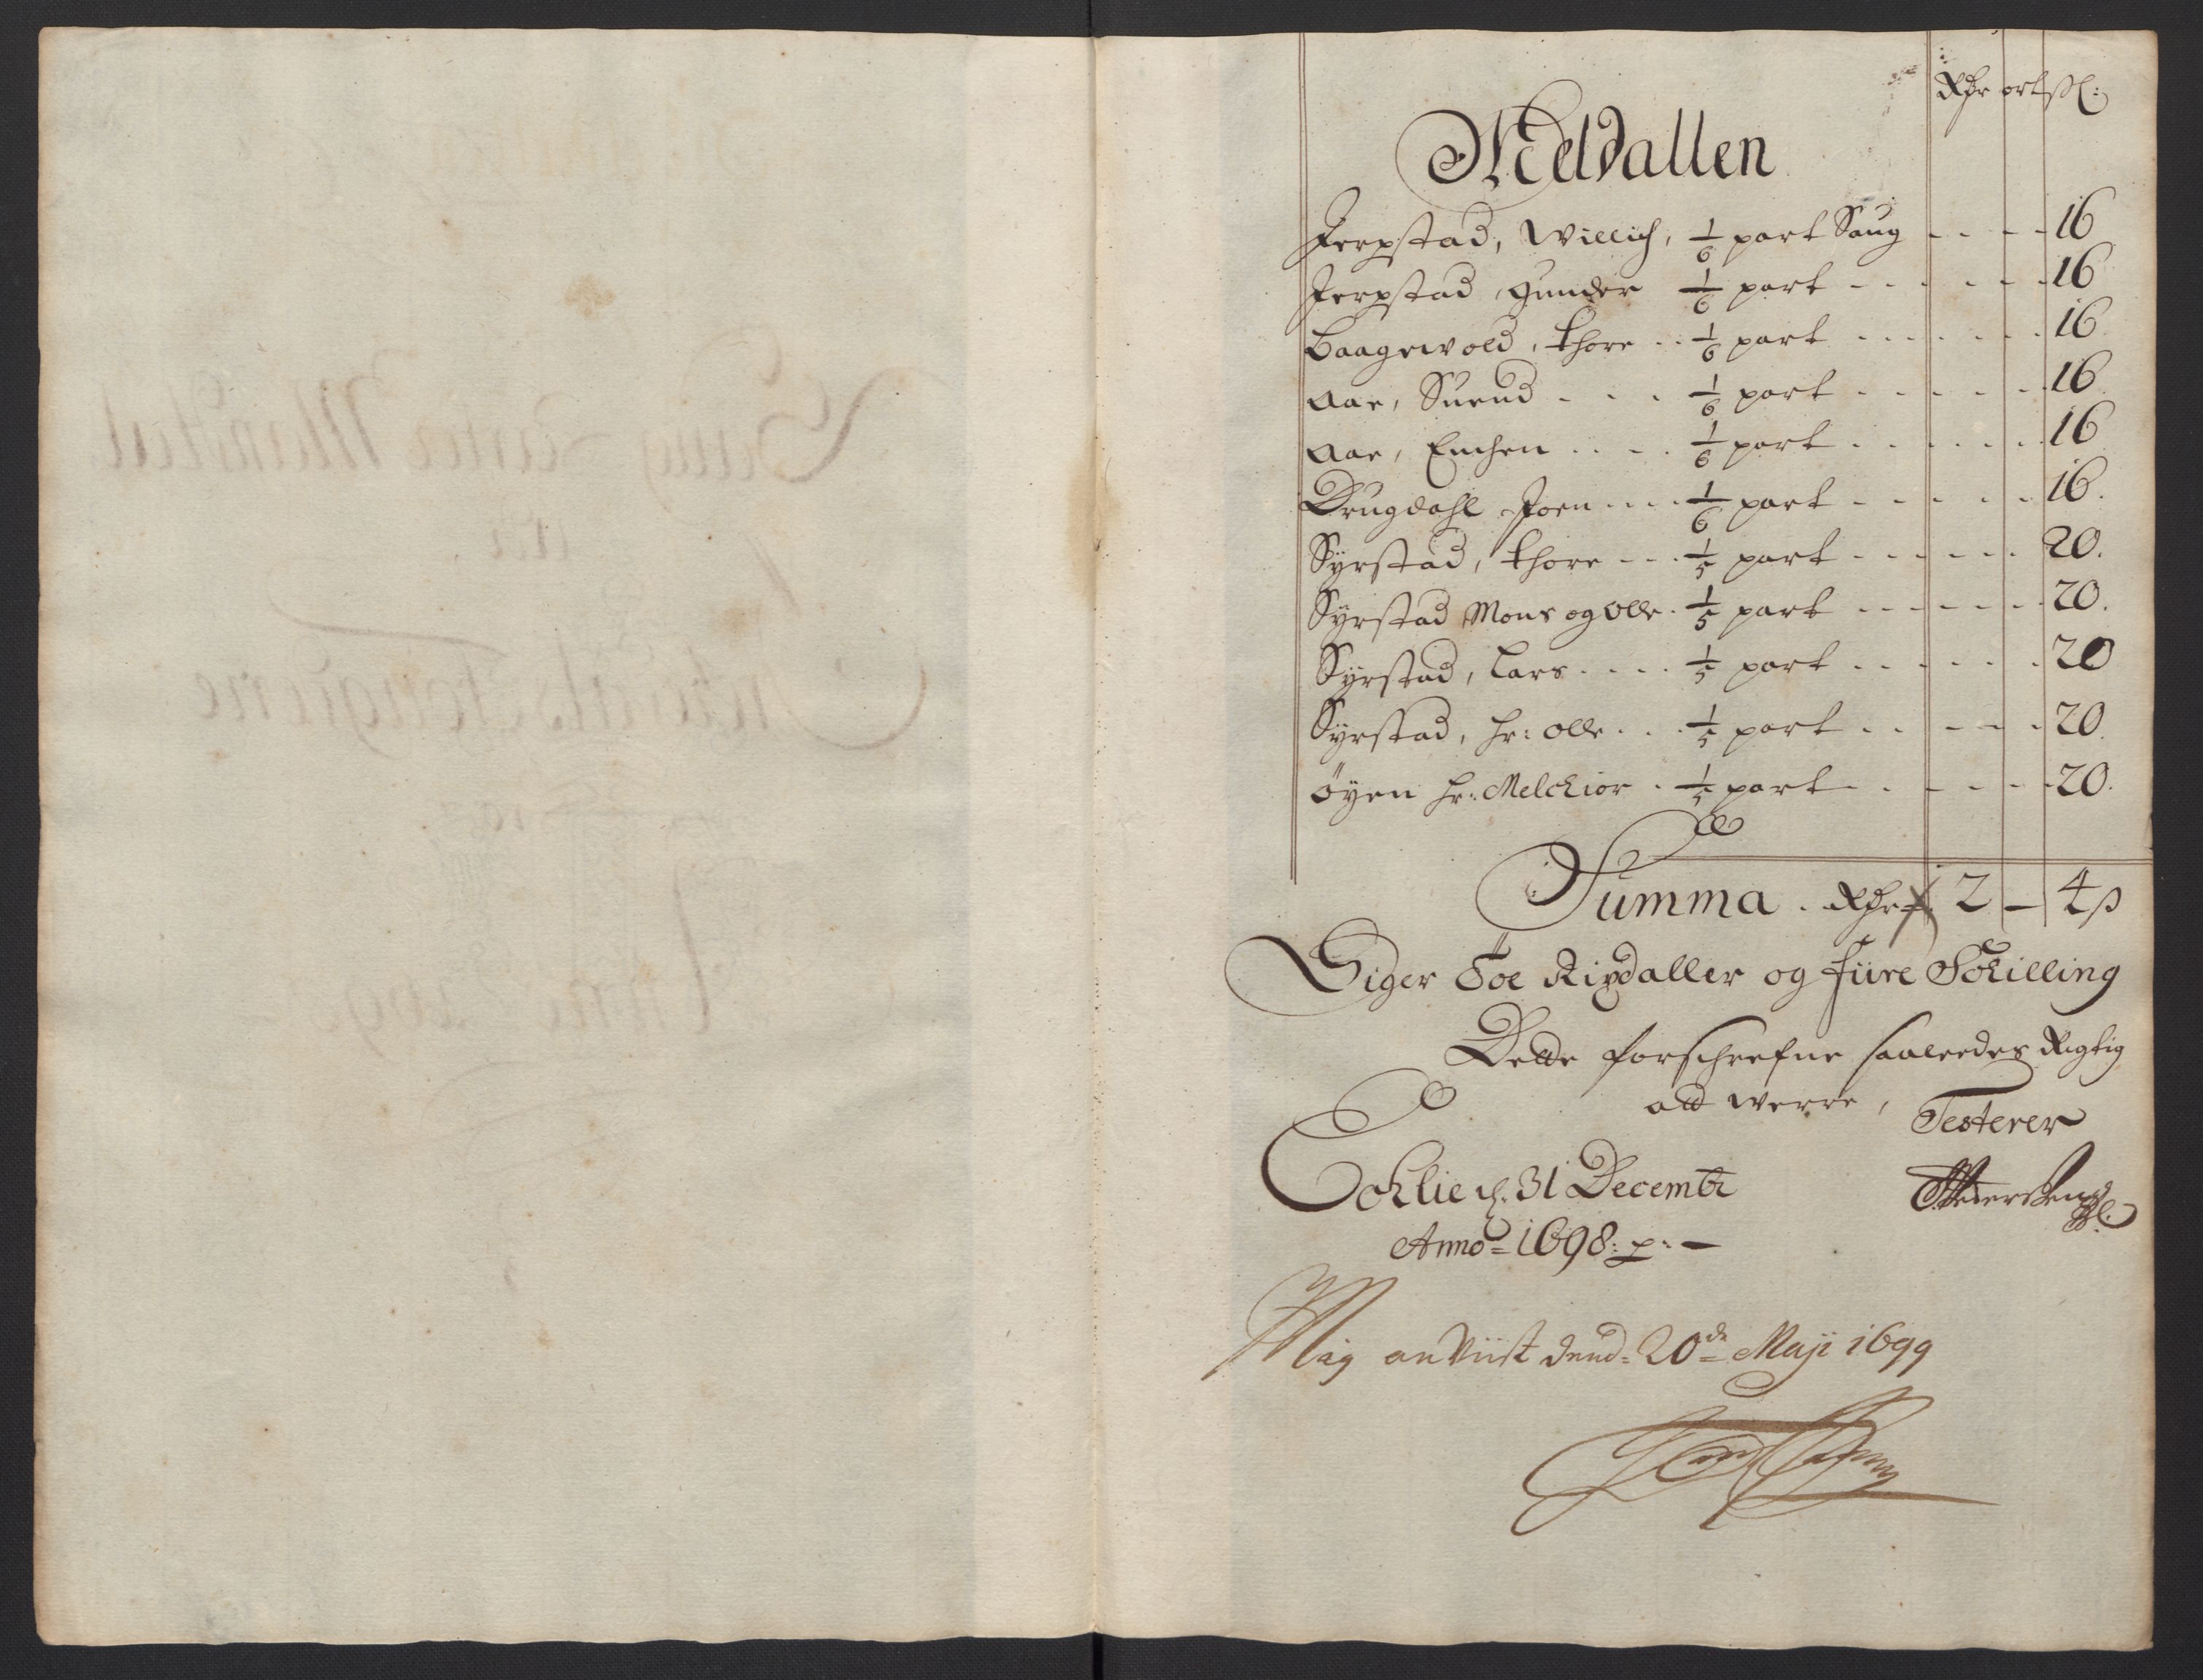 Rdr ort sl:
Meldallen
Jerpstad, Willich, 1/6 part Saug - - - - 16
Jerpstad, Gunder 1/6 part - - - - - - 16
Baagewold, Thore - - 1/6 part - - - - - - 16
Aae, Suend - - - 1/6 part - - - - - 16
Aae, Enchen - - - - 1/6 part - - - - - - 16
Drugdahl Joen - - - - 1/6 part - - - - - 16.
Syrstad, Thore - - - 1/5 part - - - - - - 20.
Syrstad Mons og Olle - 1/5 part - - - - - - 20.
Syrstad, Lars - - - - 1/5 part - - - - - - 20
Syrstad, hr: Olle - - - 1/5 part - - - - - 20.
Öyen hr: Melchior - 1/5 part - - - - - - 20.
Summa . Rdr 2 – 4 ß
Siger Toe Rixdaller og fiire Schilling
Dette forschrefne saaleedes Rigtig
att werre, Testerer
Ecklie d. 31 Decembr
Anno = 1698: p: –
Mig anViist dend = 20de = Maji 1699